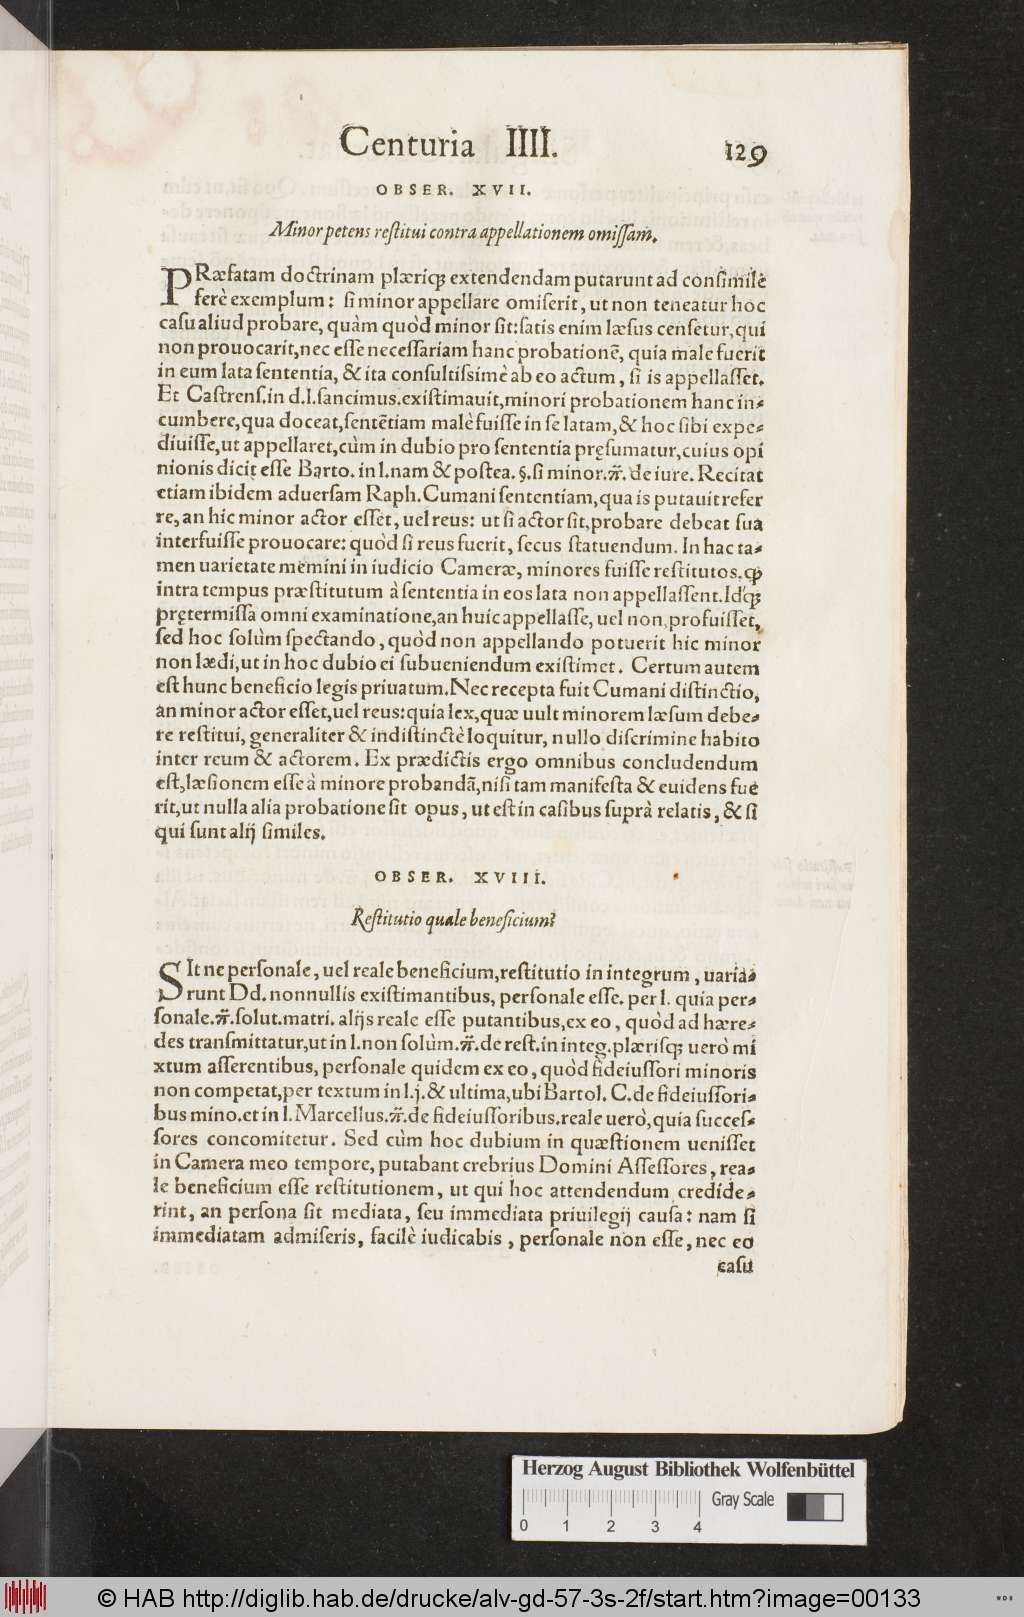 Centuria IIII. 129
OBSER. XVII.
Minor petens reſtitui contra appellationem omiſſam.
PRæfatam doctrinam plæriq; extendendam putarunt ad conſimile
ferè exemplum: ſi minor appellare omiſerit, ut non teneatur hoc
caſu aliud probare, quàm quòd minor ſit: ſatis enim læſus cenſetur, qui
non prouocarit, nec eſſe neceſſariam hanc probationẽ, quia male fuerit
in eum lata ſententia, & ita conſultiſsimè ab eo actum, ſi is appellaſſet.
Et Caſtrenſ. in d. l. ſancimus. exiſtimauit, minori probationem hanc in-
cumbere, qua doceat, ſentẽtiam malè fuiſſe in ſe latam, & hoc ſibi expe-
diuiſſe, ut appellaret, cùm in dubio pro ſententia pręſumatur, cuius opi
nionis dicit eſſe Barto. in l. nam & poſtea. §. ſi minor. ff. de iure. Recitat
etiam ibidem aduerſam Raph. Cumani ſententiam, qua is putauit refer
re, an hic minor actor eſſet, uel reus: ut ſi actor ſit, probare debeat ſua
interfuiſſe prouocare: quòd ſi reus fuerit, ſecus ſtatuendum. In hac ta-
men uarietate memini in iudicio Cameræ, minores fuiſſe reſtitutos. ꝙ
intra tempus præſtitutum à ſententia in eos lata non appellaſſent. Idq́;
prętermiſſa omni examinatione, an huic appellaſſe, uel non, profuiſſet,
ſed hoc ſolùm ſpectando, quòd non appellando potuerit hic minor
non lædi, ut in hoc dubio ei ſubueniendum exiſtimet. Certum autem
eſt hunc beneficio legis priuatum. Nec recepta fuit Cumani diſtinctio,
an minor actor eſſet, uel reus: quia lex, quæ uult minorem læſum debe-
re reſtitui, generaliter & indiſtinctè loquitur, nullo diſcrimine habito
inter reum & actorem. Ex prædictis ergo omnibus concludendum
eſt, læſionem eſſe à minore probandã, niſi tam manifeſta & euidens fue
rit, ut nulla alia probatione ſit opus, ut eſt in caſibus ſuprà relatis, & ſi
qui ſunt alij ſimiles.
OBSER. XVIII.
Reſtitutio quale beneficium?
SIt ne perſonale, uel reale beneficium, reſtitutio in integrum, uaria-
runt Dd. nonnullis exiſtimantibus, perſonale eſſe. per l. quia per-
ſonale. ff. ſolut. matri. alijs reale eſſe putantibus, ex eo, quòd ad hære-
des tranſmittatur, ut in l. non ſolùm. ff. de reſt. in integ. plæriſq; uerò mi
xtum aſſerentibus, perſonale quidem ex eo, quòd fideiuſſori minoris
non competat, per textum in l. j. & ultima, ubi Bartol. C. de fideiuſſori-
bus mino. et in l. Marcellus. ff. de fideiuſſoribus. reale uerò, quia ſucceſ-
ſores concomitetur. Sed cùm hoc dubium in quæſtionem ueniſſet
in Camera meo tempore, putabant crebrius Domini Aſſeſſores, rea-
le beneficium eſſe reſtitutionem, ut qui hoc attendendum credide-
rint, an perſona ſit mediata, ſeu immediata priuilegij cauſa: nam ſi
immediatam admiſeris, facilè iudicabis, perſonale non eſſe, nec eo
caſu
Herzog August Bibliothek Wolfenbüttel
Gray Scale
0 1 2 3 4
© HAB http://diglib.hab.de/drucke/alv-gd-57-3s-2f/start.htm?image=00133